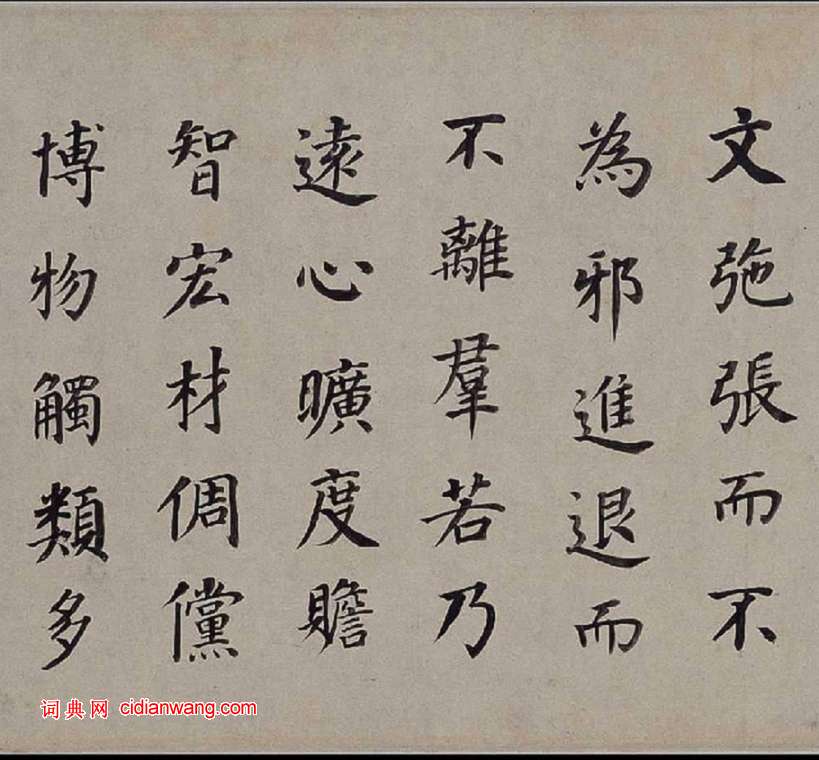 文弛張而不
為邪進退而
不離羣若乃
遠心曠度贍
智宏材倜儻
博物觸類多
词典网 cidianwang.com